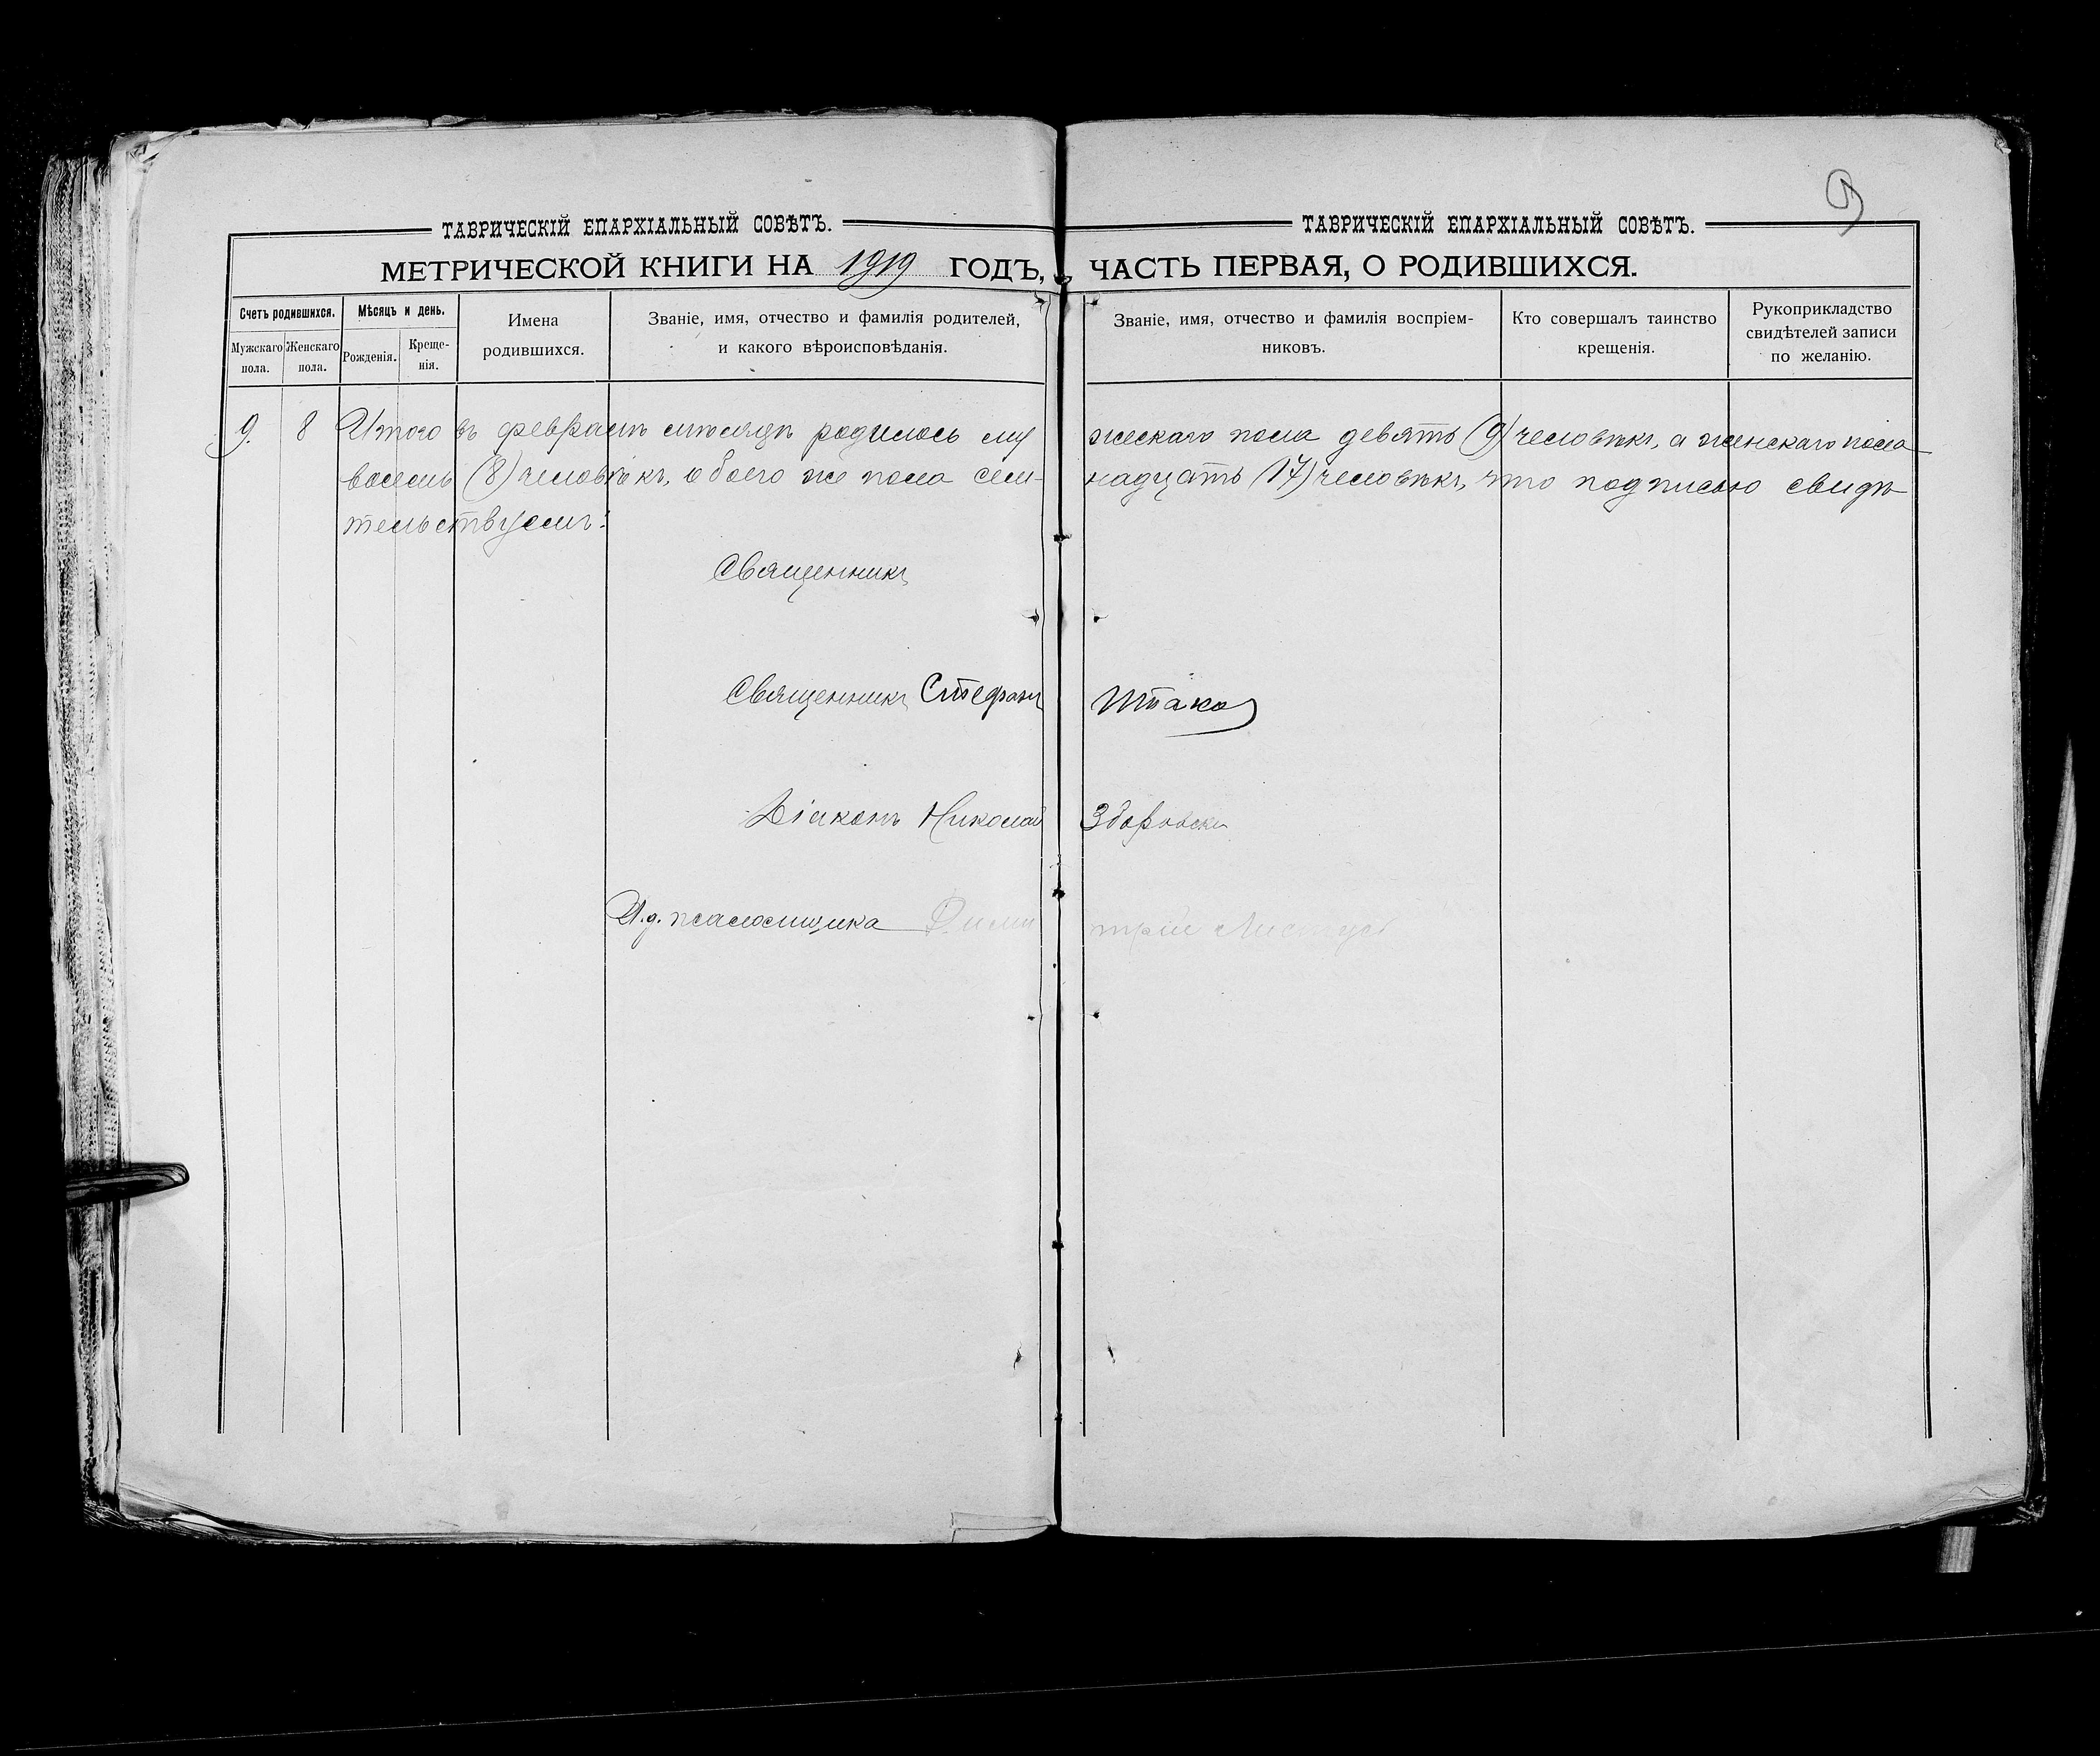 9
ТАВРИЧЕСКІЙ ЕПАРХІАЛЬНЫЙ СОВѢТЪ.
МЕТРИЧЕСКОЙ КНИГИ НА 1919 ГОДЪ,
Счетъ родившихся.
Мужскаго пола.
Женскаго пола.
Мѣсяцъ и день.
Рожденія.
Креще-
нія.
Имена
родившихся.
Званіе, имя, отчество и фамилія родителей,
и какого вѣроисповѣданія.
ТАВРИЧЕСКІЙ ЕПАРХІАЛЬНЫЙ СОВѢТЪ.
ЧАСТЬ ПЕРВАЯ, О РОДИВШИХСЯ.
Званіе, имя, отчество и фамилія воспріем-
никовъ.
Кто совершалъ таинство
крещенія.
Рукоприкладство
свидѣтелей записи
по желанію.
9. 8 Итого въ февралѣ мѣсяцѣ родилось му жескаго пола девять (9) человѣкъ, а женскаго пола
восемь (8) человѣкъ, обоего же пола сем- надцать (17) человѣкъ, что подписью свидѣ-
тельствуемъ:
Священникъ
Священникъ Стефанъ
Діаконъ Николай
И.д. псаломщика Дими трій